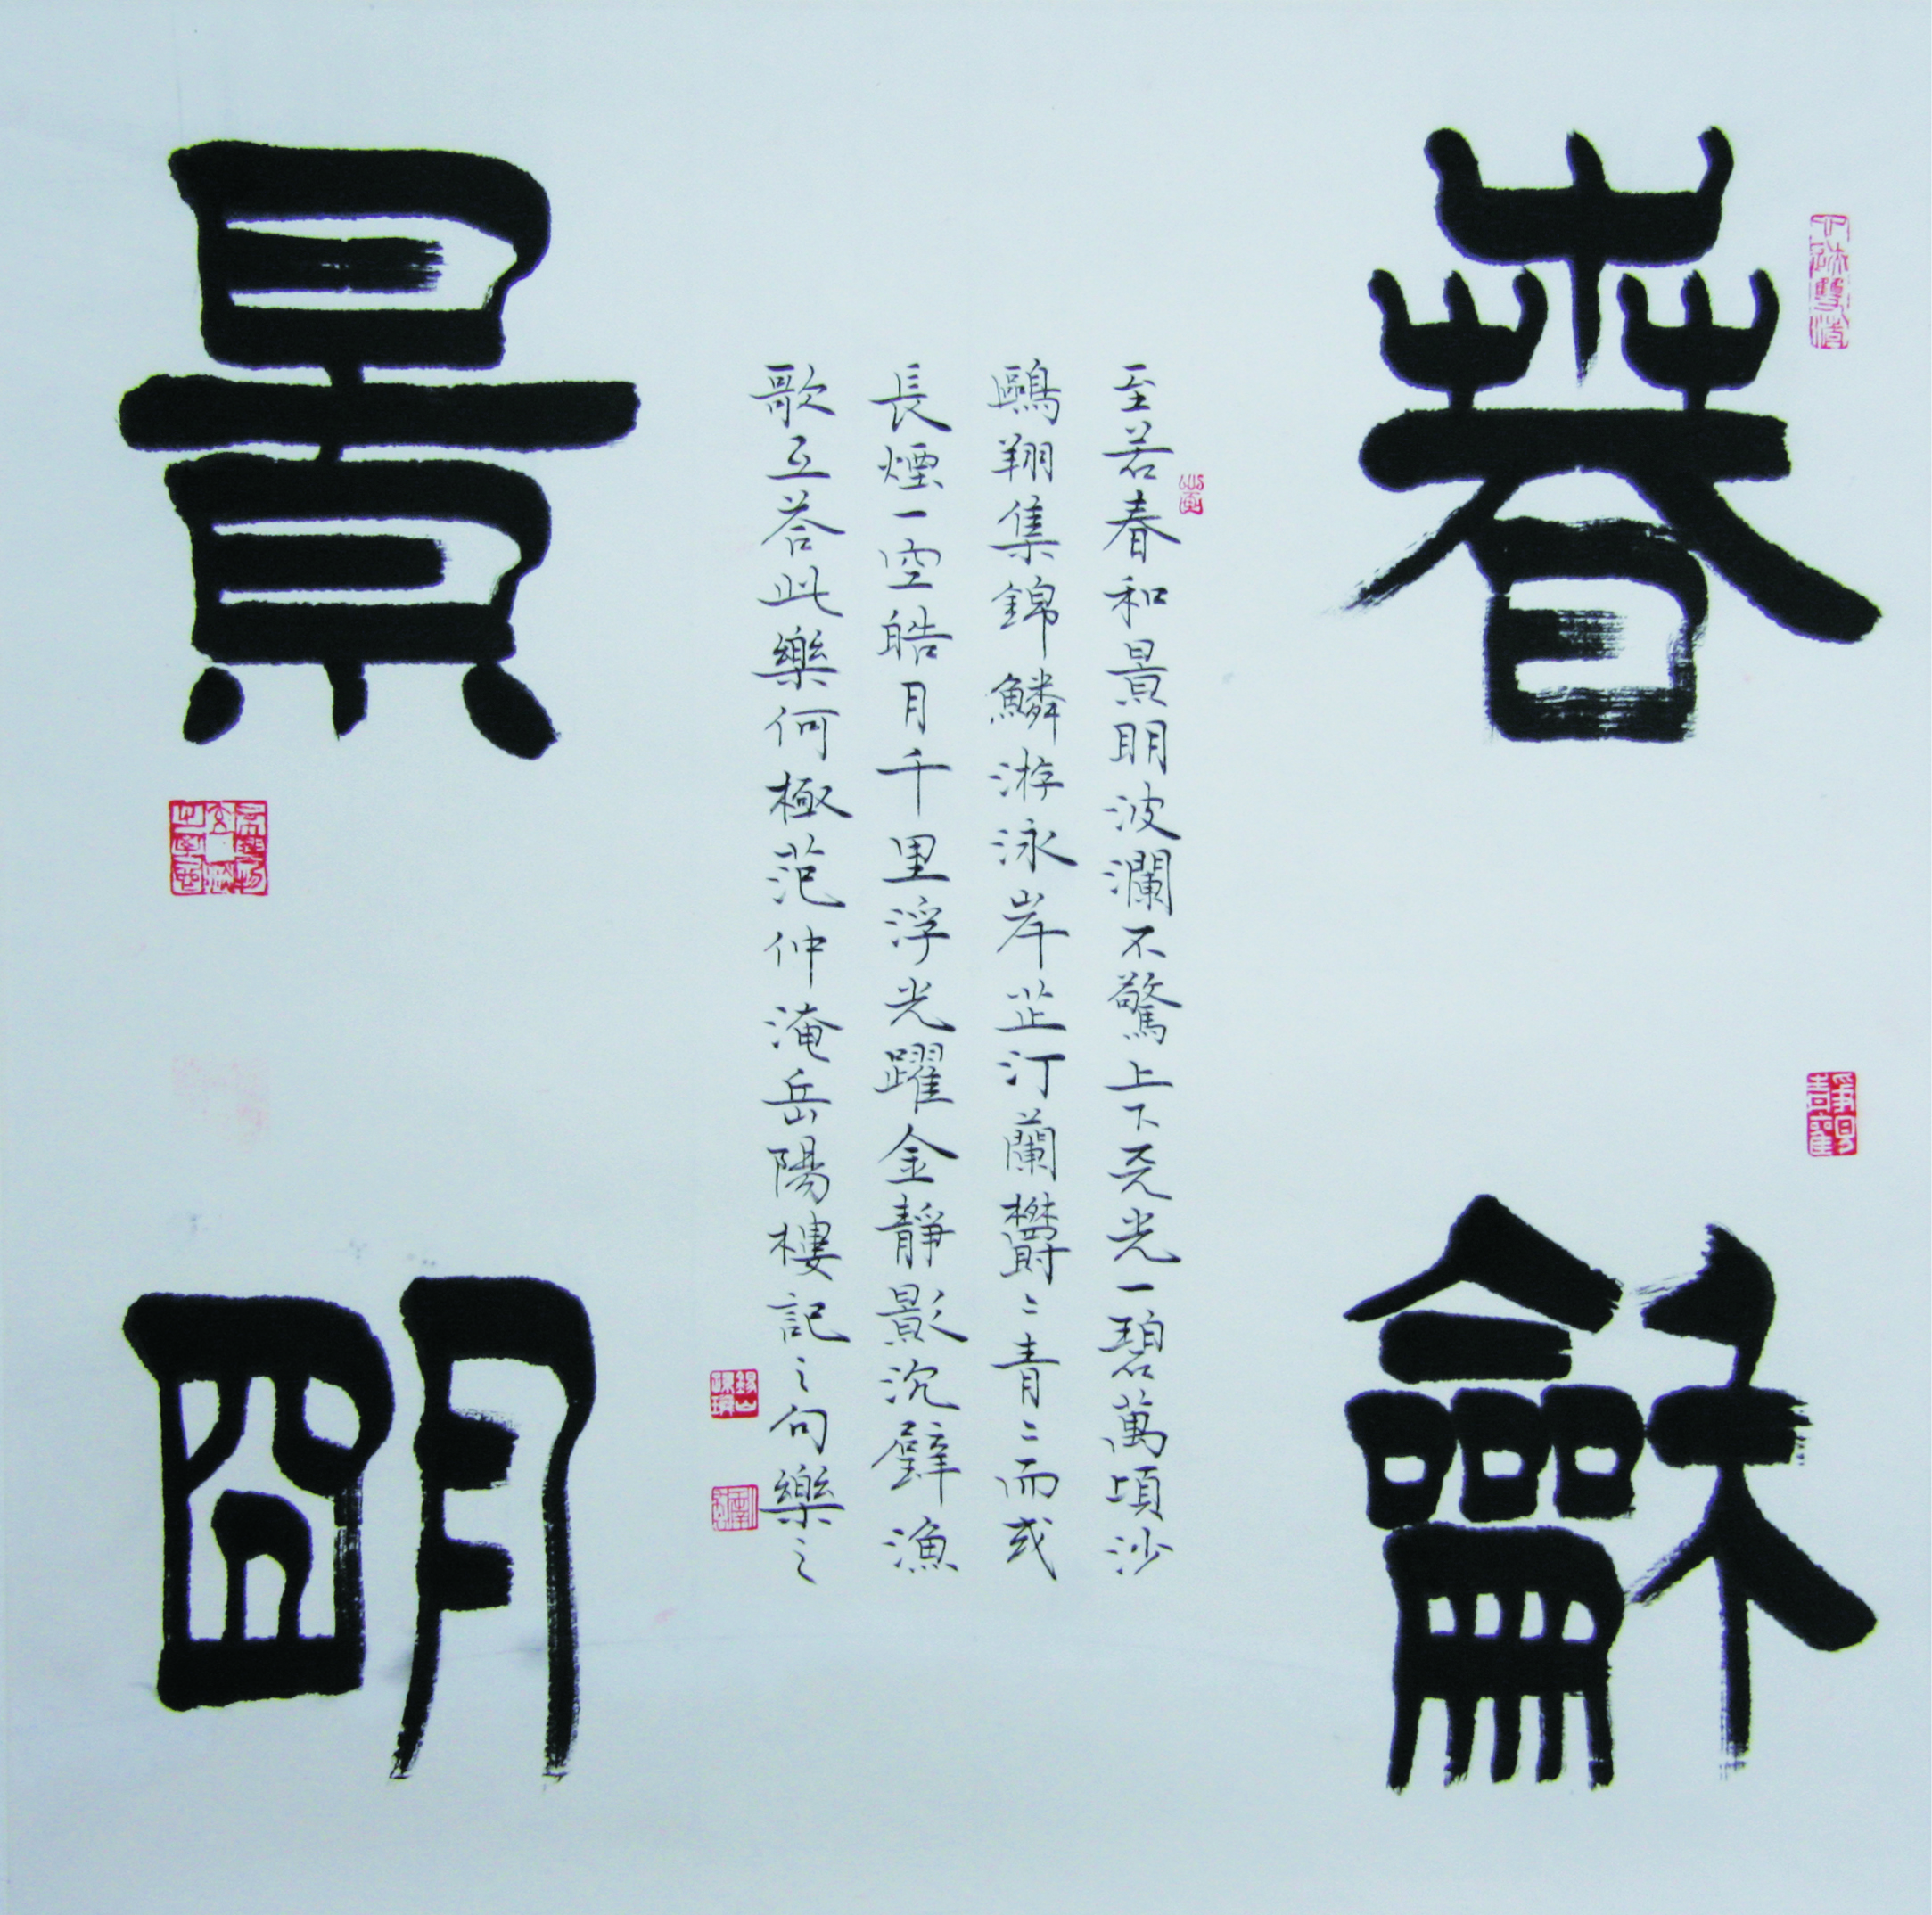 春龢
景明
至若春和景明波瀾不驚上下天光一碧萬頃沙
鷗翔集錦鱗游泳岸芷汀蘭欝〻青〻而或
長煙一空皓月千里浮光躍金靜影沉璧漁
歌互荅此樂何極范仲淹岳陽樓記之句樂之